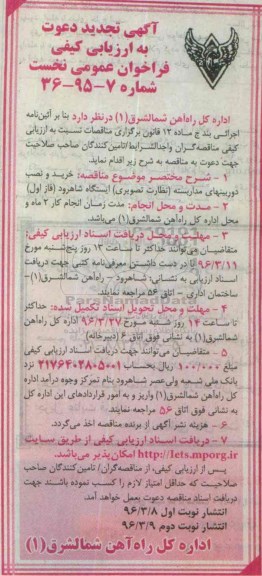 آگهی تجدید دعوت
به ارزیابی کیفی
فراخوان عمومی نخست
شماره ۷-۹۵-۳۶
اداره کل راه‌آهن شمالشرق(۱) درنظر دارد بنا بر آئین‌نامه
اجرائی بند ج ماده ۱۲ قانون برگزاری مناقصات نسبت به ارزیابی
کیفی مناقصه‌گران واجدالشرایط/تامین‌کنندگان صاحب صلاحیت
جهت دعوت به مناقصه به شرح زیر اقدام نماید.
۱ - شرح مختصر موضوع مناقصه: خرید و نصب
دوربینهای مداربسته (نظارت تصویری) ایستگاه شاهرود (فاز اول)
۲ - مدت و محل انجام: مدت زمان انجام کار ۲ ماه و
محل اداره کل راه‌آهن شمالشرق(۱) می‌باشد.
۳ - مهلت و محل دریافت اسناد ارزیابی کیفی:
متقاضیان می‌توانند حداکثر تا ساعت ۱۳ روز پنج‌شنبه مورخ
۹۶/۳/۱۱ با در دست داشتن معرفی‌نامه کتبی جهت دریافت
اسناد ارزیابی به نشانی: شاهرود - راه‌آهن شمالشرق(۱)-
ساختمان اداری - اتاق ۵۶ مراجعه نمایند.
۴ - مهلت و محل تحویل اسناد تکمیل شده: حداکثر
تا ساعت ۱۴ روز شنبه مورخ ۹۶/۳/۲۷ اداره کل راه‌آهن
شمالشرق(۱) به نشانی فوق اتاق ۶ (دبیرخانه)
۵ - متقاضیان می‌توانند جهت دریافت اسناد ارزیابی کیفی
مبلغ ۱۰۰/۰۰۰ ریال بحساب ۲۱۷۶۴۰۲۸۰۵۰۰۱ نزد
بانک ملی شعبه ولی‌عصر شاهرود بنام تمرکز وجوه درآمد اداره
کل راه‌آهن شمالشرق(۱) واریز و به امور قراردادهای این اداره کل
به نشانی فوق اتاق ۵۶ مراجعه نمایند.
۶ - هزینه نشر آگهی از برنده مناقصه اخذ می‌گردد.
۷ - دریافت اسناد ارزیابی کیفی از طریق سایت
http://Iets.mporg.ir امکان‌پذیر می‌باشد.
پس از ارزیابی کیفی، از مناقصه‌گران/ تامین کنندگان صاحب
صلاحیت که حداقل امتیاز لازم را کسب نموده باشند جهت
دریافت اسناد مناقصه دعوت بعمل خواهد آمد.
انتشار نوبت اول ۹۶/۳/۸
انتشار نوبت دوم ۹۶/۳/۹
اداره کل راه‌آهن شمالشرق(۱)